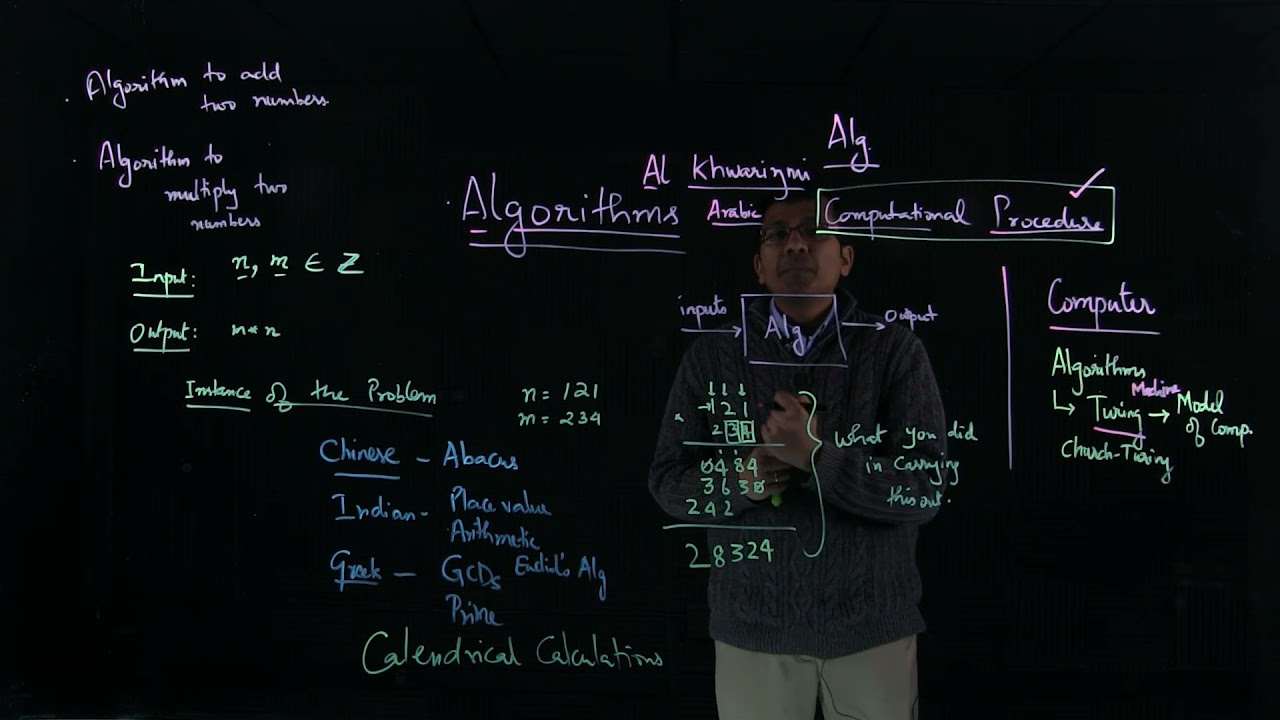 . Algorithm to add
two numbers
. Algorithm to
multiply two
numbers
Input: n, m ∈ Z
Output: m * n
Instance of the Problem
n = 121
m = 234
Chinese - Abacus
Indian - Place value
Arithmetic
Greek - GCDs Euclid's Alg
Prime
Calendrical Calculations
Alg.
Al Khwarizmi
. Algorithms
Arabic
Computational Procedure ✓
inputs → Alg → Output
↓ ↓ ↓
→ 121
× 234
0484
3630
242
28324
What you did
in carrying
this out.
Computer
Algorithms
↳ Turing Machine → Model
of Comp.
Church-Turing